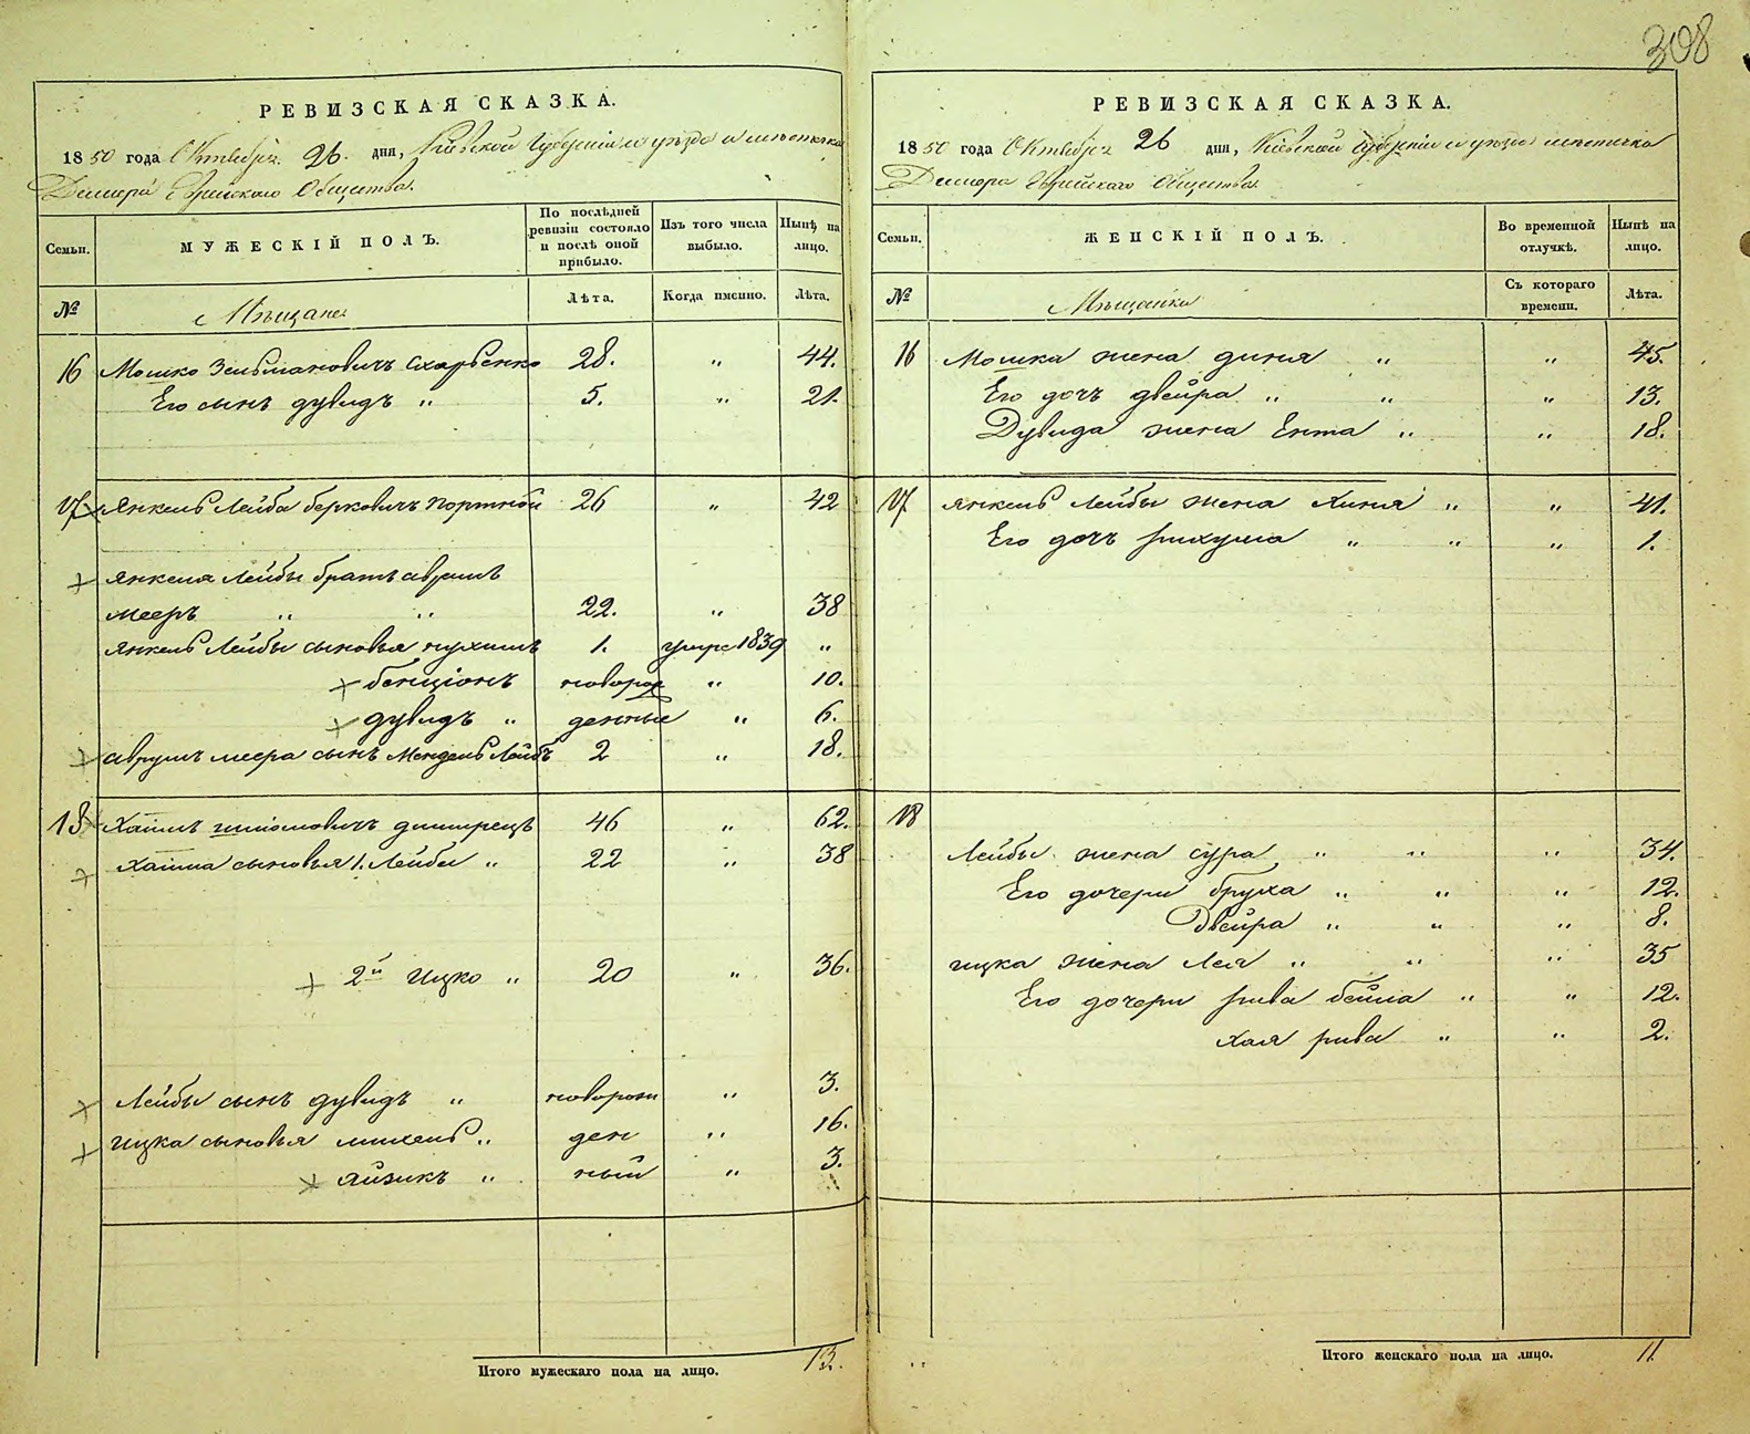 308
РЕВИЗСКАЯ СКАЗКА.
1850 года Октября 26. дня, Кіевской Губерніи и уѣзда и мѣстечка
Димера Еврейского Общества.
Семьи. МУЖЕСКІЙ ПОЛЪ. По послѣдней ревизіи состояло и послѣ оной прибыло. Изъ того числа выбыло. Нынѣ на лицо.
№ Мѣщане Лѣта. Когда именно. Лѣта.
16 Мошко Зельмановичъ 28. " 44.
Его сынъ Дувидъ " 5. " 21.
17 Янкель Лейба Берковичъ Портной 26 " 42
Янкеля Лейбы братъ Аврумъ
Мееръ " " 22. " 38
Янкель Лейбы сыновья Нухимъ 1. умре 1839 "
Бенціонъ новорож " 10.
Дувидъ " денные " 6.
Аврумъ Меера сынъ Мендель Лейбъ 2 " 18.
18 Хаимъ 46 " 62.
Хаима сыновья 1. Лейба " 22 " 38
2й Ицко " 20 " 36.
Лейбы сынъ Дувидъ " новорож " 3.
Ицка сыновья Михель " ден " 16.
Айзикъ " ный " 3.
Итого мужескаго пола на лицо. 13.
РЕВИЗСКАЯ СКАЗКА.
1850 года Октября 26 дня, Кіевской Губерніи и уѣзда мѣстечка
Димера Еврейского Общества.
Семьи. ЖЕНСКІЙ ПОЛЪ. Во временной отлучкѣ. Нынѣ на лицо.
№ Мѣщанки Съ котораго времени. Лѣта.
16 Мошка жена Диня " " 45.
Его дочь Двейра " " " 13.
Дувида жена Ента " " 18.
17 Янкель Лейбы жена Хиня " " 41.
Его дочь Рихума " " " 1.
18
Лейбы жена Сура " " " 34.
Его дочери Бруха " " " 12.
Двейра " " " 8.
Ицка жена Лея " " " 35
Его дочери Рива Бейла " " 12.
Хая Рива " " 2.
Итого женскаго пола на лицо. 11